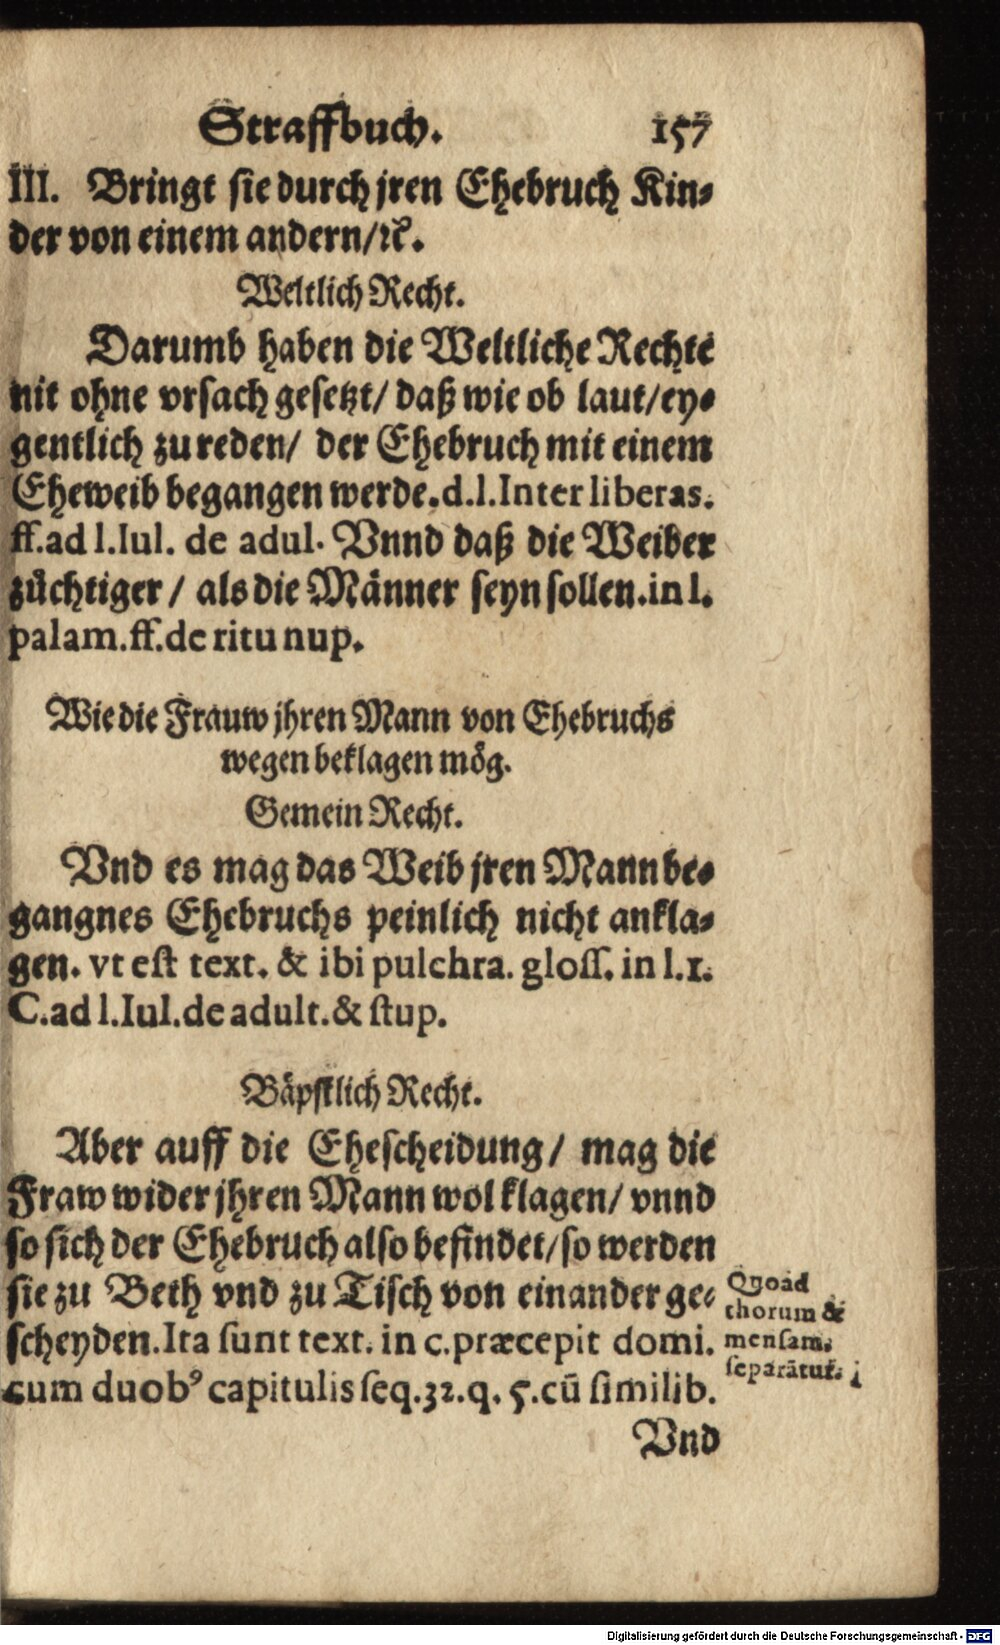 Straffbuch. 157
III. Bringt sie durch jren Ehebruch Kin⸗
der von einem andern/ꝛc.
Weltlich Recht.
Darumb haben die Weltliche Rechte
nit ohne vrsach gesetzt/ daß wie ob laut/ey⸗
gentlich zu reden/ der Ehebruch mit einem
Eheweib begangen werde.d.l.Inter liberas.
ff.ad l.Iul. de adul. Vnnd daß die Weiber
zůchtiger / als die Männer seyn sollen.in l.
palam.ff.de ritu nup.
Wie die Frauw jhren Mann von Ehebruchs
wegen beklagen mög.
Gemein Recht.
Vnd es mag das Weib jren Mann be⸗
gangnes Ehebruchs peinlich nicht ankla⸗
gen. vt est text. & ibi pulchra. gloss. in l.1.
C.ad l.Iul.de adult.& stup.
Bäpstlich Recht.
Aber auff die Ehescheidung/ mag die
Fraw wider jhren Mann wol klagen/ vnnd
so sich der Ehebruch also befindet/so werden
sie zu Beth vnd zu Tisch von einander ge⸗
scheyden.Ita sunt text. in c.præcepit domi.
cum duobꝰ capitulis seq.32.q. 5.cū similib.
Quoad
thorum &
mensam.
separātur.
Vnd
Digitalisierung gefördert durch die Deutsche Forschungsgemeinschaft - DFG